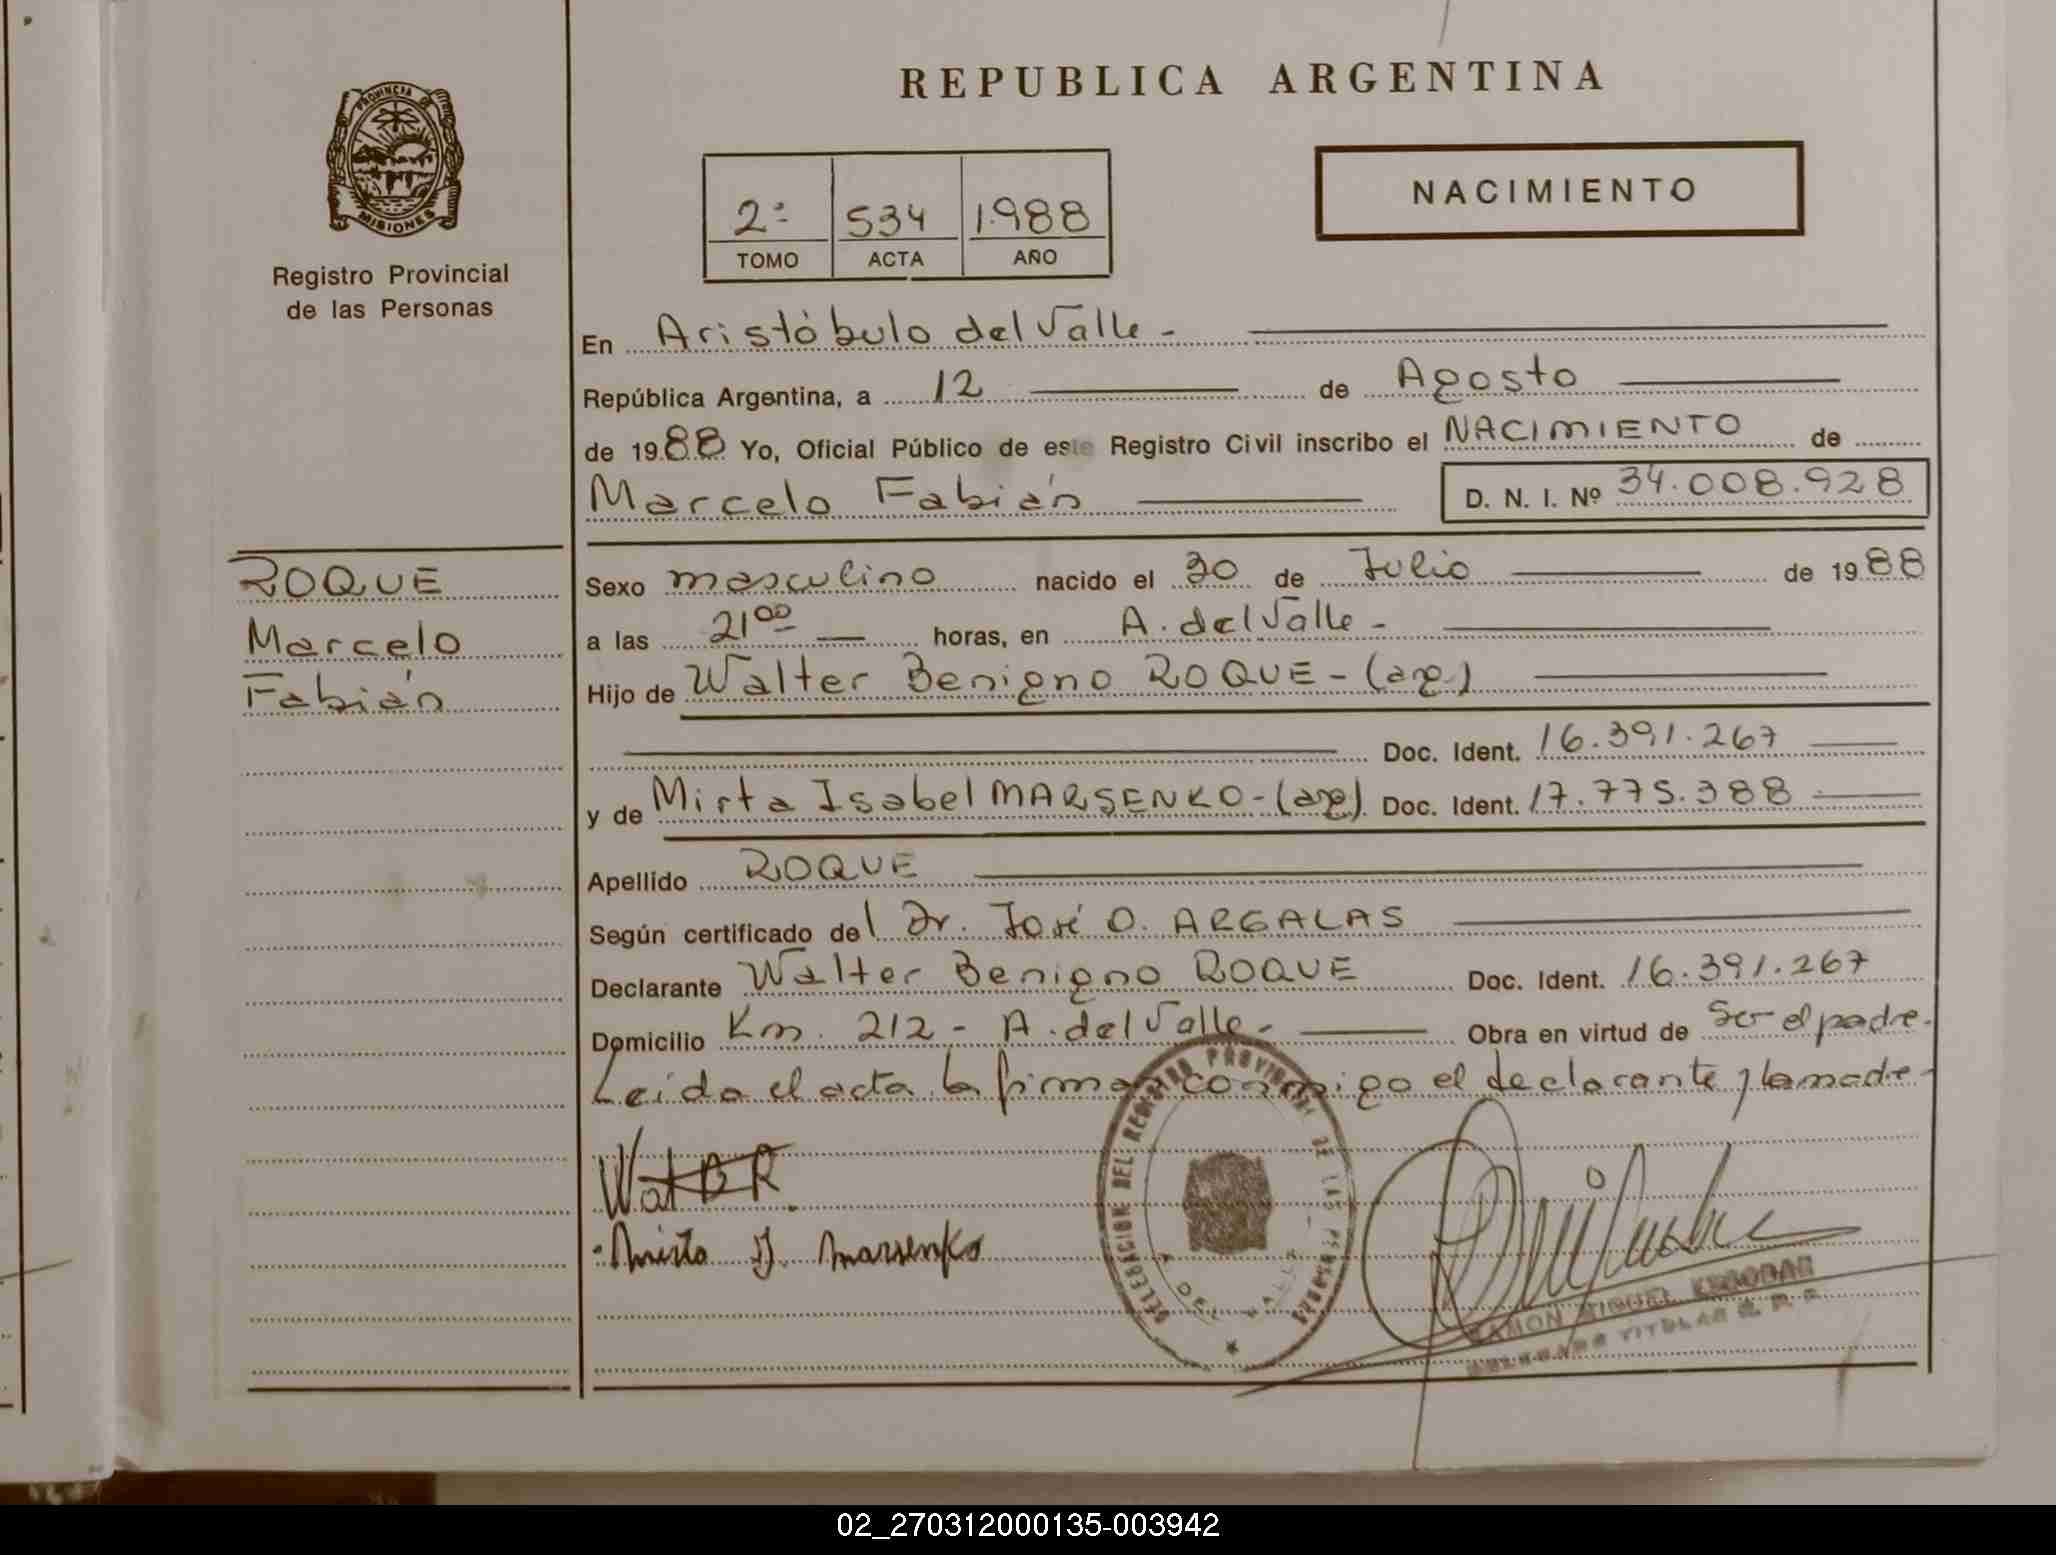 REPUBLICA ARGENTINA
PROVINCIA DE
MISIONES
Registro Provincial
de las Personas
2º 534 1.988
TOMO ACTA AÑO
NACIMIENTO
En Aristóbulo del Valle -
República Argentina, a 12 de Agosto
de 1988 Yo, Oficial Público de este Registro Civil inscribo el NACIMIENTO de
Marcelo Fabián D. N. I. Nº 34.008.928
ROQUE
Marcelo
Fabián
Sexo masculino nacido el 30 de Julio de 1988
a las 21 00 horas, en A. del Valle -
Hijo de Walter Benigno ROQUE - (arg)
Doc. Ident. 16.391.267
y de Mirta Isabel MARSENKO - (arg) Doc. Ident. 17.775.388
Apellido ROQUE
Según certificado del Dr. José O. ARGALAS
Declarante Walter Benigno ROQUE Doc. Ident. 16.391.267
Domicilio Km. 212 - A. del Valle - Obra en virtud de Ser el padre.
Leída el acta, la firman conmigo el declarante y la madre -
DELEGACION DEL REGISTRO PROVINCIAL DE LAS PERSONAS
A DEL VALLE
Mirta I. Marsenko
RAMON MIGUEL ESCOBAR
DELEGADO TITULAR R. P. P.
02_270312000135-003942